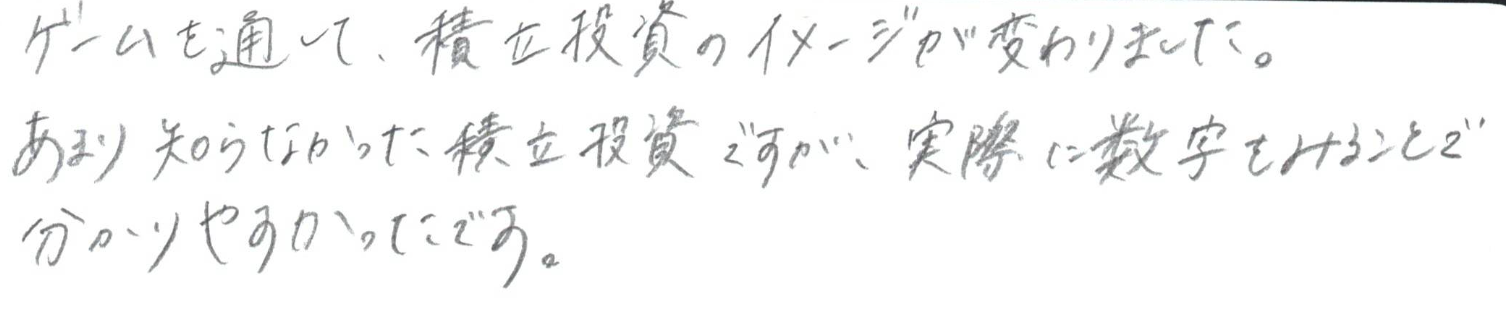 ゲームを通して、積立投資のイメージが変わりました。
あまり知らなかった積立投資ですが、実際に数字をみることで
分かりやすかったです。